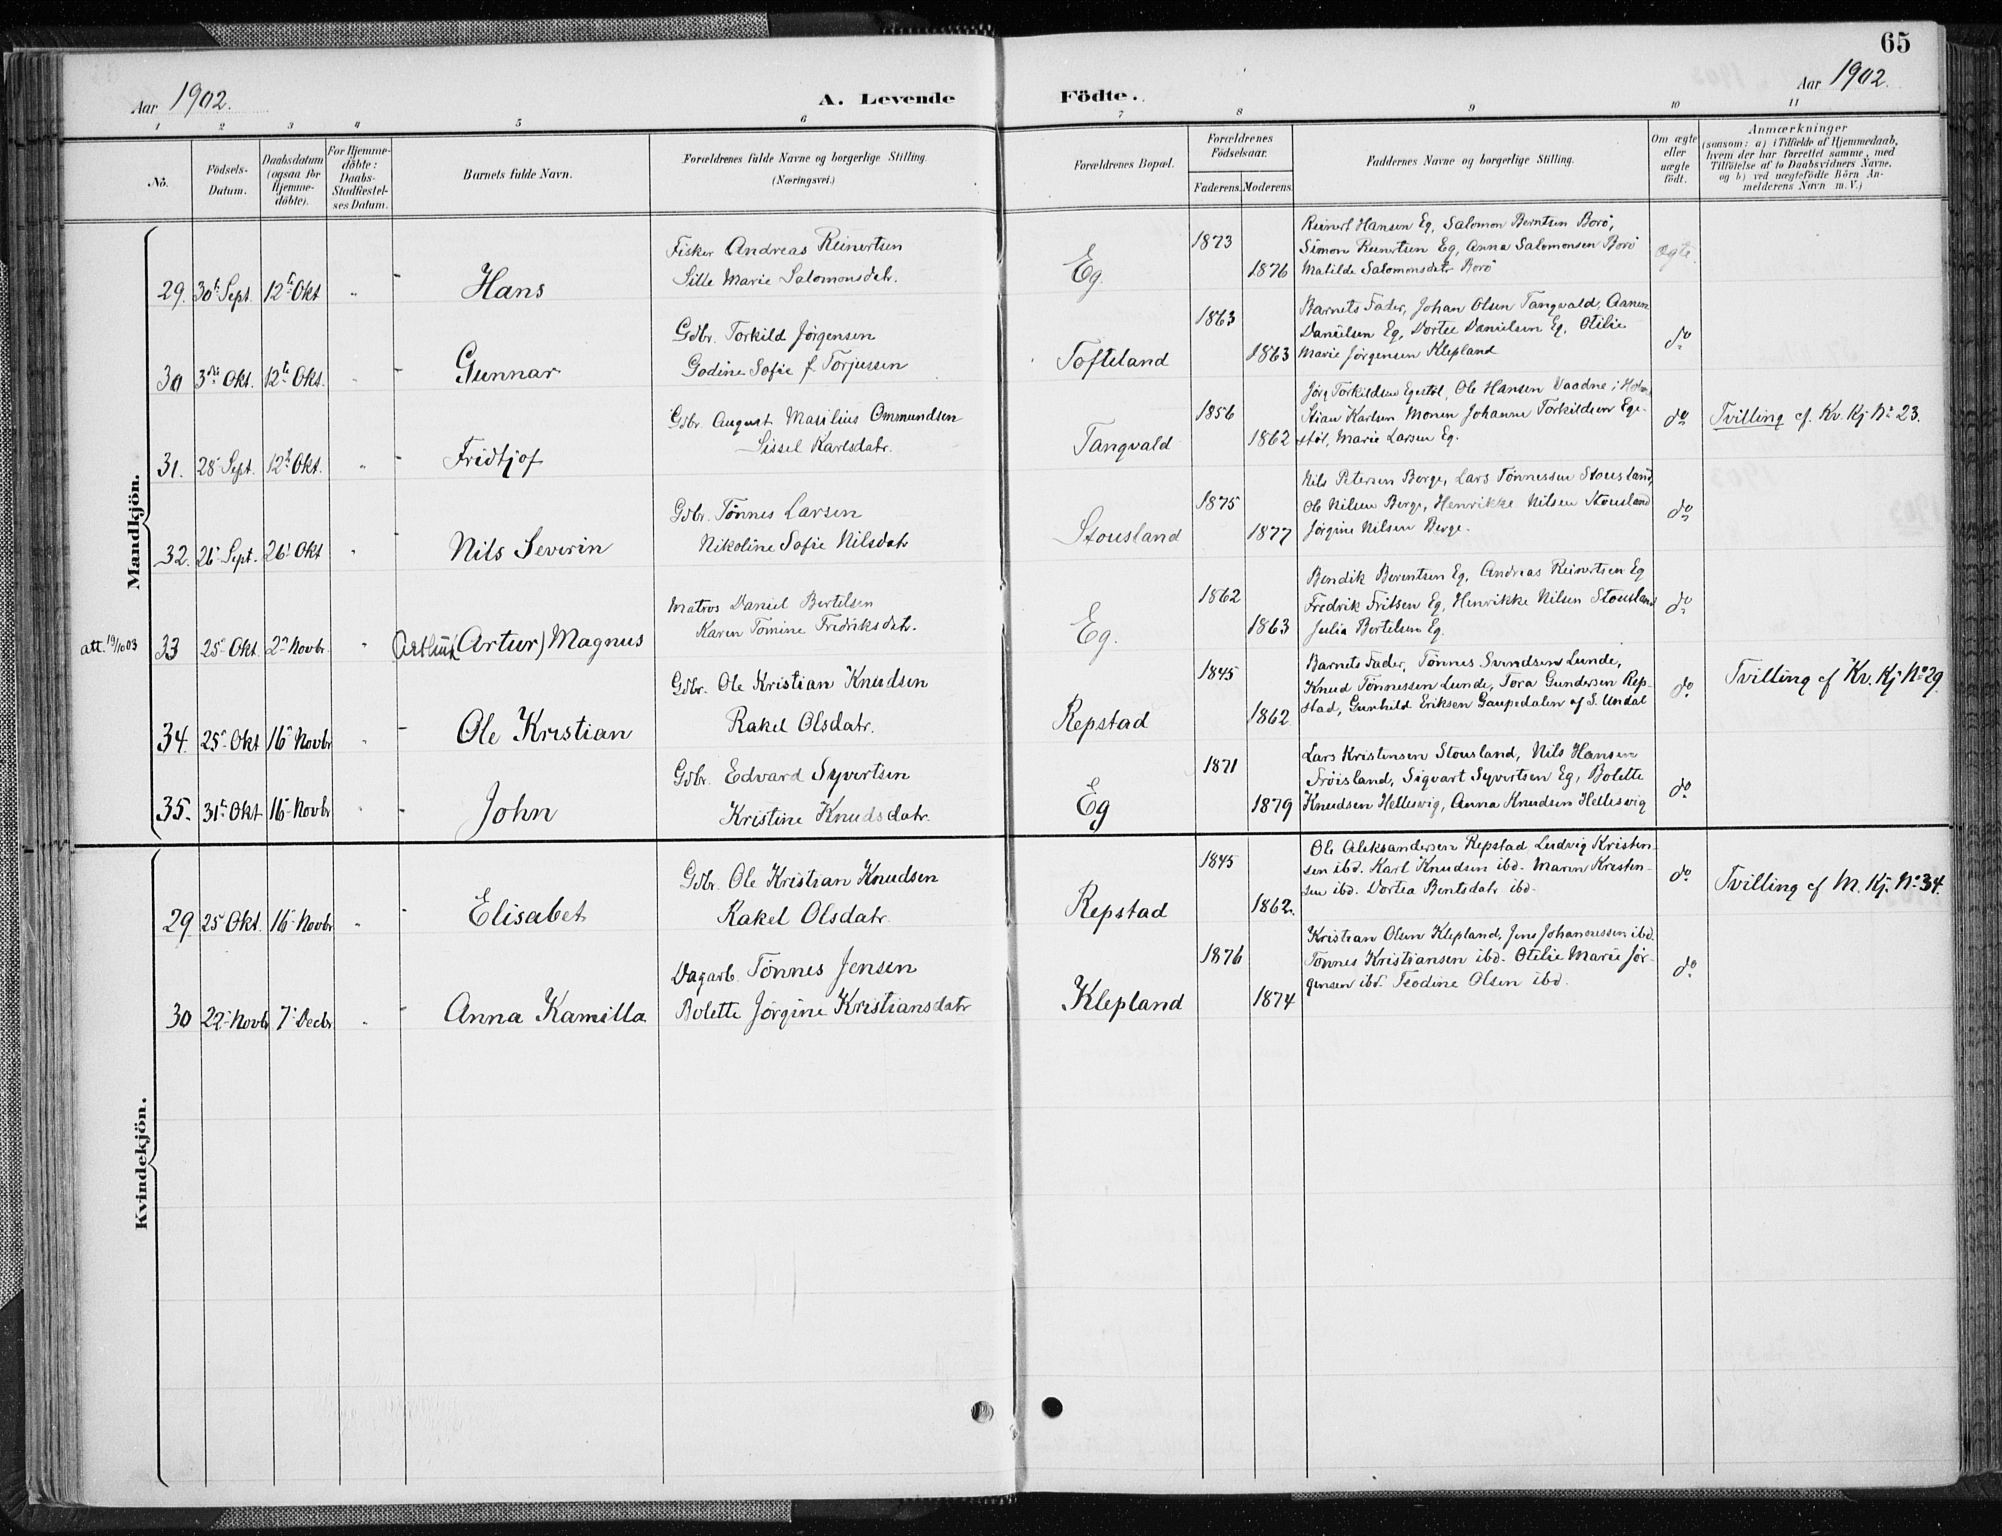 65
Aar 1902.
A. Levende Födte.
Aar 1902.
1 2 3 4 5 6 7 8 9 10 11
No.
Födsels-Datum.
Daabsdatum (ogsaa for Hjemme-döbte).
For Hjemme-döbte: Daabs-Stadfæstel-ses Datum.
Barnets fulde Navn.
Forældrenes fulde Navne og borgerlige Stilling.
(Næringsvei.)
Forældrenes Bopæl.
Forældrenes Födselsaar.
Faderens. Moderens.
Faddernes Navne og borgerlige Stilling.
Om ægte eller uægte födt.
Anmærkninger
(saasom: a) i Tilfælde af Hjemmedaab,
hvem der har forrettet samme, med
Tilföielse af to Daabsvidners Navne.
og b) ved uægtefödte Börn An-
melderens Navn m. V.)
Mandkjön.
29. 30t Sept. 12t Okt " - Hans
Fisker Andreas Reinertsen
Sille Marie Salomonsdatr.
Eg.
1873
1876
Reinert Hansen Eg, Salomon Berntsen Borö,
Simon Reinertsen Eg, Anna Salomonsen Borö
Matilde Salomonsdatr Borö
ægte.
30 3die Okt. 12t Okt. " - Gunnar
Gdbr. Torkild Jörgensen
Godine Sofie f Torjussen
Tofteland
1863
1863
Barnets Fader, Johan Olsen Tangvald, Aanen
Danielsen Eg, Dortee Danielsen Eg, Otilie
Marie Jörgensen Klepland
do
31. 28 Sept. 12t Okt. " - Fridtjof
Gdbr. August Masilius Ommundsen
Sissel Karlsdatr.
Tangvald
1856
1862
Jörg Torkildsen Egestöl, Ole Hansen Vaadne i
Stian Karlsen Monen Johanne Torkildsen Ege-
stöl, Marie Larsen Eg.
do
Tvilling cf. Kv. Kj No 23.
32. 26 Sept. 26 Okt " - Nils Severin
Gdbr. Tönnes Larsen
Nikoline Sofie Nilsdatr
Stousland
1875
1877
Nils Petersen Berge, Lars Tönnessen Stousland,
Ole Nilsen Berge, Henrikke Nilsen Stousland
Jörgine Nilsen Berge.
do
att. 19/10 03 33 25 Okt. 2n Novbr. " (Artur) Magnus
Matros Daniel Bertelsen
Karen Tomine Fredriksdatr.
Eg.
1862
1863
Bendik Berentsen Eg, Andreas Reinertsen Eg
Fredrik Fritsen Eg, Henrikke Nilsen Stousland
Julia Bertelsen Eg.
do
34. 25 Okt 16 Novbr " - Ole Kristian
Gdbr. Ole Kristian Knudsen
Rakel Olsdatr.
Repstad
1845
1862
Barnets Fader, Tönnes Svendsen Lunde,
Knud Tönnessen Lunde, Tora Gundersen Rep-
stad, Gunhild Eriksen Gaupedalen af S. Undal
do
Tvilling cf Kv. Kj No 29.
35. 31t Okt 16 Novbr " - John
Gdbr. Edvard Syvertsen
Kristine Knudsdatr.
Eg
1871
1879
Lars Kristensen Stousland, Nils Hansen
Fröisland, Sigvart Syvertsen Eg, Bolette
Knudsen Hellesvig, Anna Knudsen Hellesvig
do
Kvindekjön.
29 25 Okt. 16 Novbr " - Elisabet
Gdbr. Ole Kristian Knudsen
Rakel Olsdatr.
Repstad
1845
1862.
Ole Aleksandersen Repstad, Ludvig Kristen-
sen ibd. Karl Knudsen ibd. Maren Kristen-
sen ibd. Dortea Bentsdatr ibd.
do
Tvilling cf M. Kj. No 34.
30 22 Novbr 7 Decbr " - Anna Kamilla
Dagarb. Tönnes Jensen
Bolette Jörgine Kristiansdatr
Klepland
1876
1874
Kristian Olsen Klepland, Jens Johannessen ibd.
Tönnes Kristiansen ibd. Otilie Marie Jör-
gensen ibd. Teodine Olsen ibd.
do